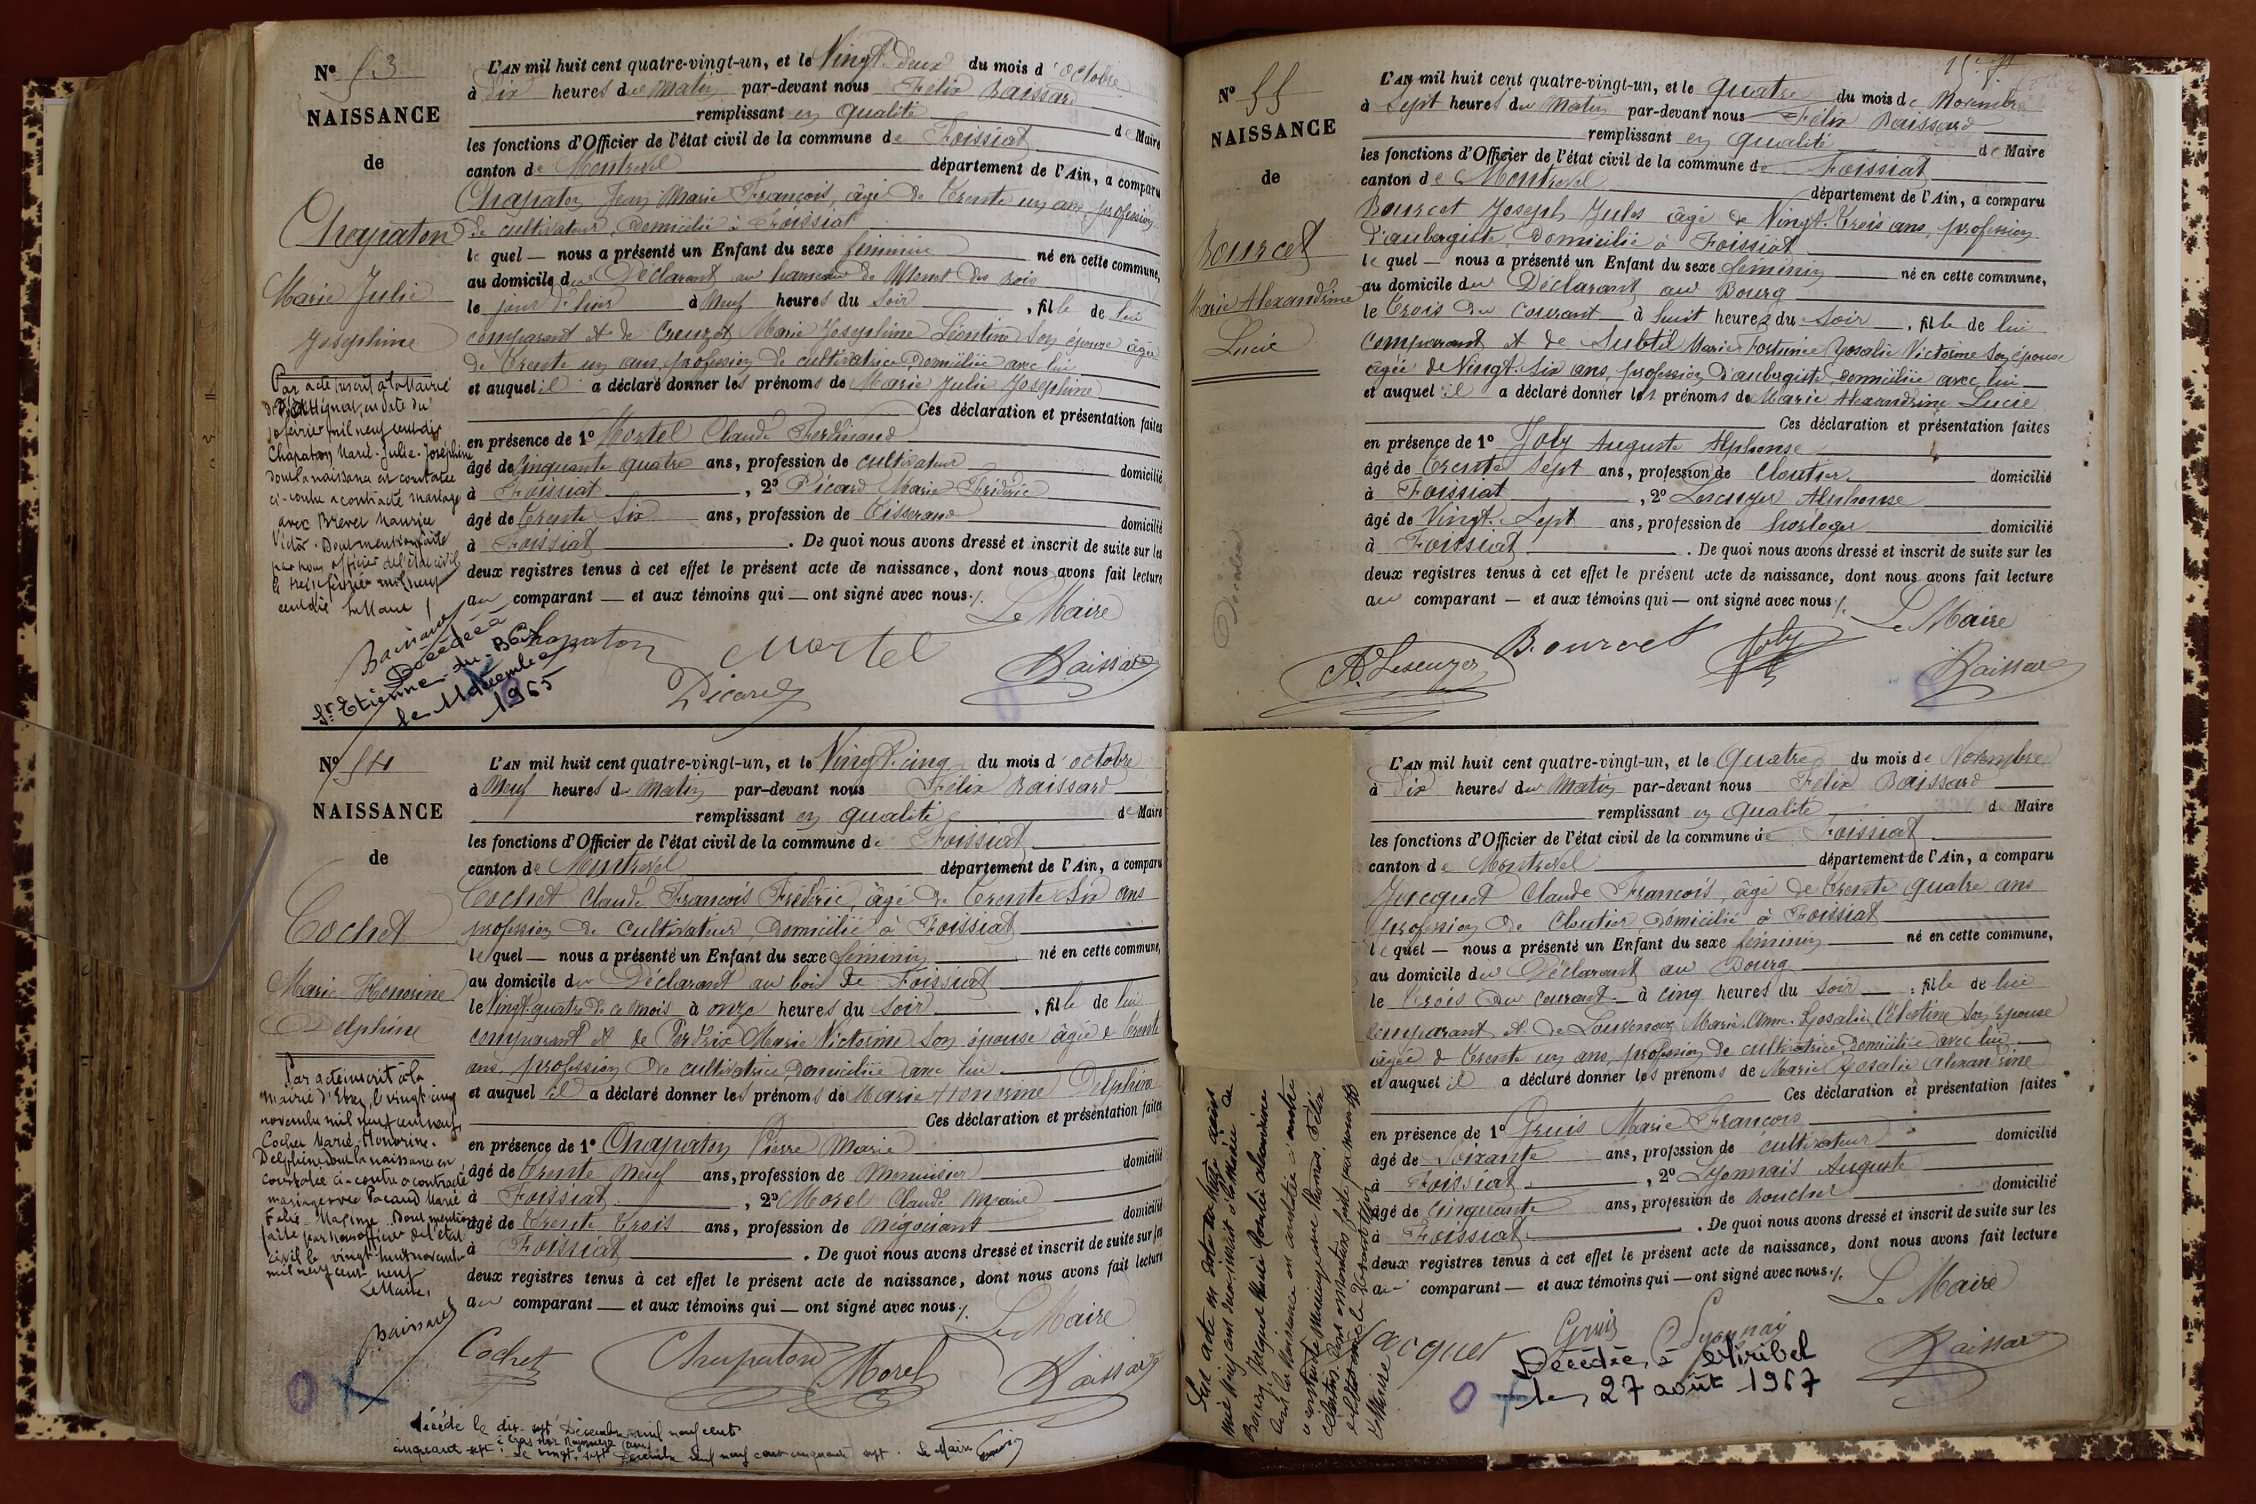 Nº 53
NAISSANCE
de
Chapaton
Marie Julie
Joséphine
L'AN mil huit cent quatre-vingt-un, et le Vingt deux du mois d'octobre
à Dix heures du Matin par-devant nous Félix Baissard
remplissant en qualité de Maire
les fonctions d'Officier de l'état civil de la commune de Foissiat
canton de Montrevel département de l'Ain, a comparu
Chapaton Jean Marie François, âgé de Trente un ans, profession
de cultivateur, Domicilié à Foissiat
le quel — nous a présenté un Enfant du sexe féminin né en cette commune,
au domicile du Déclarant au hameau de Mont des Bois
le jour d'hier à Neuf heures du soir, fille de lui
comparant et de Creuzot Marie Joséphine Léontine son épouse âgée
de Trente un ans, profession de cultivatrice, Domiciliée avec lui
et auquel il a déclaré donner les prénoms de Marie Julie Joséphine
Ces déclaration et présentation faites
en présence de 1º Mortel Claude Ferdinand
âgé de Cinquante quatre ans, profession de cultivateur domicilié
à Foissiat, 2º Picard Marie Frédéric
âgé de Trente Six ans, profession de Tisserand domicilié
à Foissiat. De quoi nous avons dressé et inscrit de suite sur les
deux registres tenus à cet effet le présent acte de naissance, dont nous avons fait lecture
au comparant — et aux témoins qui — ont signé avec nous ./.
Le Maire
Chapaton Mortel
Picard Baissard
Par acte inscrit à la Mairie
en date du
février mil neuf cent dix
Chapaton Marie-Julie-Joséphine
dont la naissance est constatée
ci-contre a contracté mariage
avec Brevet Maurice
Victor. Dont mention faite
par nous officier de l'état civil
le treize février mil neuf
cent dix Le Maire
Baissard
Décédée à
St Etienne-du-Bois
le 11 décembre
1965
Nº 54
NAISSANCE
de
Cochet
Marie Honorine
Delphine
L'AN mil huit cent quatre-vingt-un, et le Vingt cinq du mois d'octobre
à Neuf heures du Matin par-devant nous Félix Baissard
remplissant en qualité de Maire
les fonctions d'Officier de l'état civil de la commune de Foissiat
canton de Montrevel département de l'Ain, a comparu
Cochet Claude François Frédéric, âgé de Trente Six ans
profession de cultivateur, Domicilié à Foissiat
le quel — nous a présenté un Enfant du sexe féminin né en cette commune,
au domicile du Déclarant au bois de Foissiat
le Vingt quatre de ce mois à onze heures du soir, fille de lui
comparant et de Perdrix Marie Victorine son épouse âgée de Trente
ans, profession de cultivatrice, domiciliée avec lui
et auquel il a déclaré donner les prénoms de Marie Honorine Delphine
Ces déclaration et présentation faites
en présence de 1º Chapaton Pierre Marie
âgé de Trente Neuf ans, profession de Menuisier domicilié
à Foissiat, 2º Morel Claude Marie
âgé de Trente Trois ans, profession de négociant domicilié
à Foissiat. De quoi nous avons dressé et inscrit de suite sur les
deux registres tenus à cet effet le présent acte de naissance, dont nous avons fait lecture
au comparant — et aux témoins qui — ont signé avec nous ./.
Le Maire
Cochet Chapaton Morel Baissard
Par acte inscrit à la
mairie d'Etrez, le vingt cinq
novembre mil neuf cent neuf,
Cochet Marie-Honorine-
Delphine dont la naissance est
constatée ci-contre a contracté
mariage avec Pacaud Marie
Félix Dont mention
faite par nous officier de l'état
civil le vingt huit novembre
mil neuf cent neuf
Le Maire,
Baissard
Décédé le dix-sept Décembre mil neuf cent
cinquante sept à Cras sur Reyssouze (Ain)
Le vingt sept Décembre mil neuf cent cinquante sept. Le Maire
Nº 55
NAISSANCE
de
Bourcet
Marie Alexandrine
Lucie
Décédée
L'AN mil huit cent quatre-vingt-un, et le Quatre du mois de Novembre
à Sept heures du Matin par-devant nous Félix Baissard
remplissant en qualité de Maire
les fonctions d'Officier de l'état civil de la commune de Foissiat
canton de Montrevel département de l'Ain, a comparu
Bourcet Joseph Jules âgé de Vingt Trois ans, profession
d'aubergiste, Domicilié à Foissiat
le quel — nous a présenté un Enfant du sexe féminin né en cette commune,
au domicile du Déclarant au Bourg
le Trois du courant à huit heures du soir, fille de lui
comparant et de Subtil Marie Fortunée Rosalie Victorine son épouse
âgée de Vingt Six ans, profession d'aubergiste, domiciliée avec lui
et auquel il a déclaré donner les prénoms de Marie Alexandrine Lucie
Ces déclaration et présentation faites
en présence de 1º Joly Auguste Alphonse
âgé de Trente Sept ans, profession de Cloutier domicilié
à Foissiat, 2º Lescuyer Alphonse
âgé de Vingt Sept ans, profession de horloger domicilié
à Foissiat. De quoi nous avons dressé et inscrit de suite sur les
deux registres tenus à cet effet le présent acte de naissance, dont nous avons fait lecture
au comparant — et aux témoins qui — ont signé avec nous ./.
Le Maire
A. Lescuyer Bourcet Joly Baissard
L'AN mil huit cent quatre-vingt-un, et le Quatre du mois de Novembre
à Dix heures du Matin par-devant nous Félix Baissard
remplissant en qualité de Maire
les fonctions d'Officier de l'état civil de la commune de Foissiat
canton de Montrevel département de l'Ain, a comparu
Jacquet Claude François, âgé de Trente quatre ans
profession de Cloutier, Domicilié à Foissiat
le quel — nous a présenté un Enfant du sexe féminin né en cette commune,
au domicile du Déclarant au Bourg
le Trois du courant à cinq heures du soir, fille de lui
comparant et de Marie Anne Rosalie Célestine son épouse
âgée de Trente un ans, profession de cultivatrice, domiciliée avec lui
et auquel il a déclaré donner les prénoms de Marie Rosalie Alexandrine
Ces déclaration et présentation faites
en présence de 1º Gruis Marie François
âgé de Soixante ans, profession de cultivateur domicilié
à Foissiat, 2º Lyonnais Auguste
âgé de Cinquante ans, profession de Boucher domicilié
à Foissiat. De quoi nous avons dressé et inscrit de suite sur les
deux registres tenus à cet effet le présent acte de naissance, dont nous avons fait lecture
au comparant — et aux témoins qui — ont signé avec nous ./.
Le Maire
Jacquet Gruis Lyonnais Baissard
Décédée à Miribel
le 27 août 1967